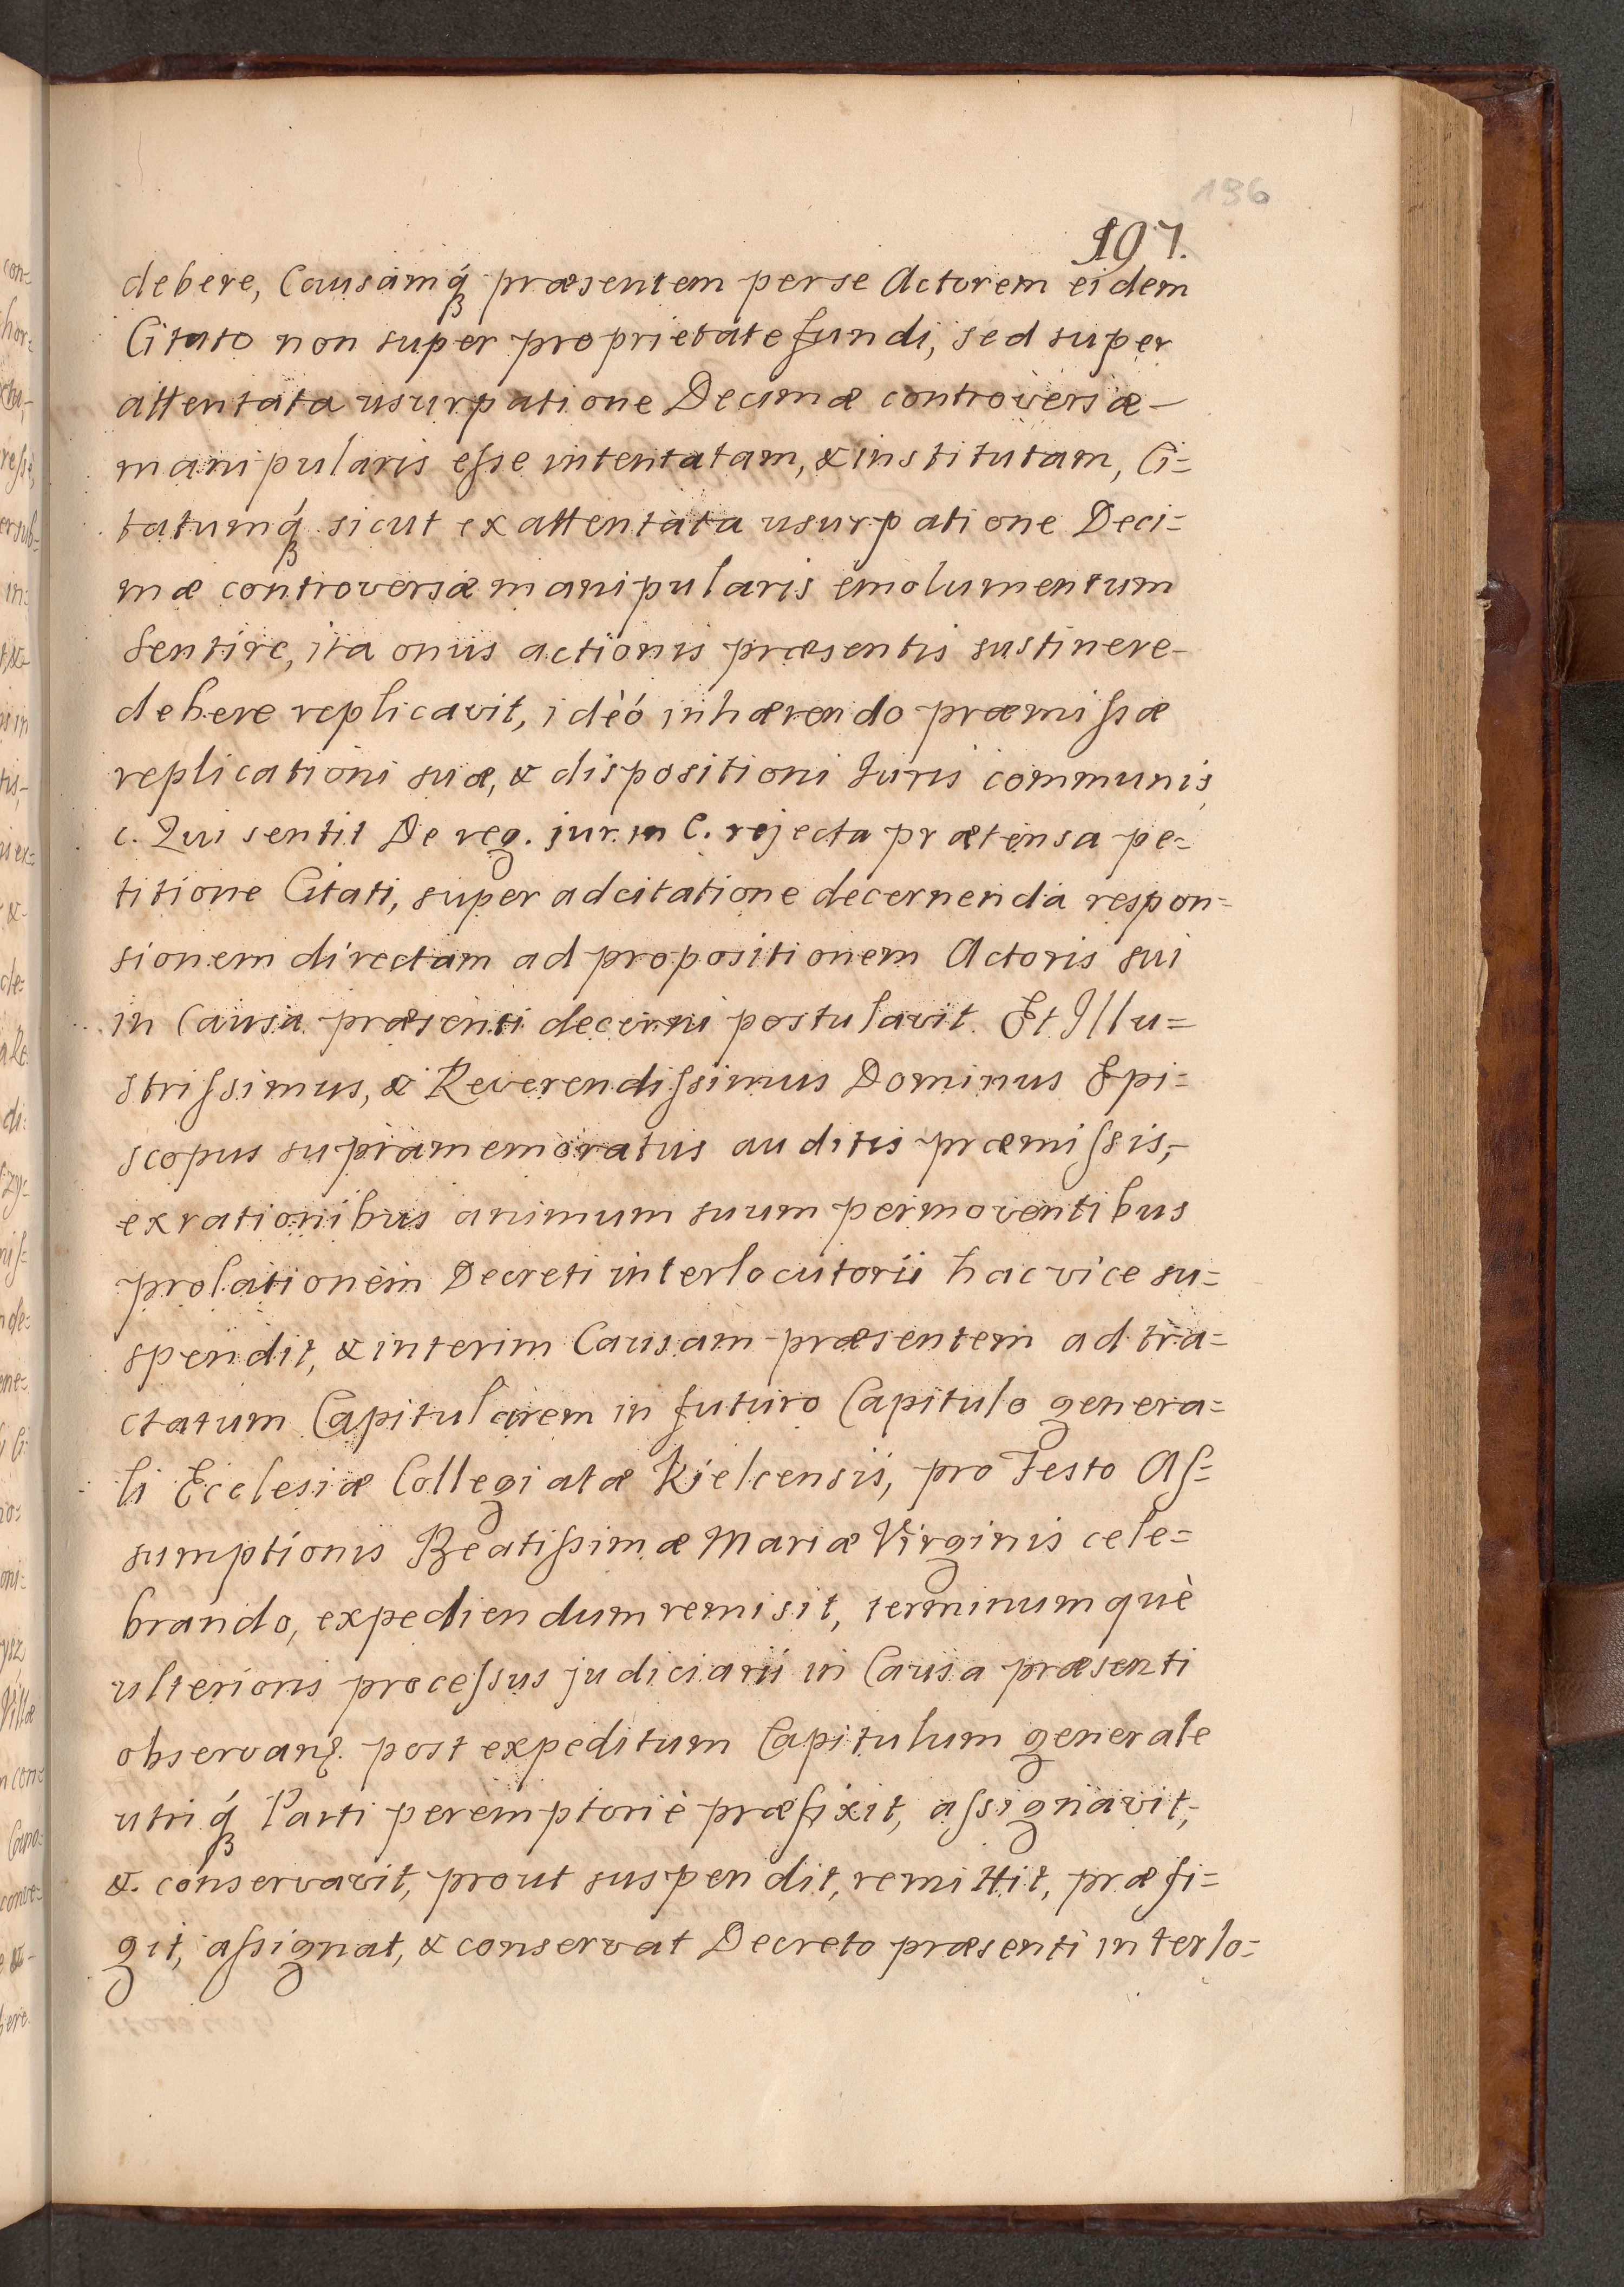 196
197.
debere, Causamq́ꝫ præsentem per se Actorem eidem
Citato non super proprietate fundi, sed super
attentata usurpatione Decimæ controversæ
manipularis eſse intentatam, & institutam, Ci=
tatumq́ꝫ sicut ex attentata usurpatione Deci=
mæ controversæ manipularis emolumentum
sentire, ita onus actionis præsentis sustinere
debere replicavit, ideó inhærendo præmiſsæ
replicationi suæ, & dispositioni Juris communis,
c. Qui sentit De reg. jur. in C. rejecta prætensa pe=
titione Citati, super adcitatione decernenda respon=
sionem directam ad propositionem Actoris sui
in Causa præsenti decerni postulavit. Et Illu=
striſsimus, & Reverendiſsimus Dominus Epi=
scopus supramemoratus auditis præmiſsis,
ex rationibus animum suum permoventibus
prolationem Decreti interlocutorii hac vice su=
spendit, & interim Causam præsentem ad tra=
ctatum Capitularem in futuro Capitulo genera=
li Ecclesiæ Collegiatæ Kielcensis, pro Festo Aſ=
sumptionis Beatiſsimæ Mariæ Virginis cele=
brando, expediendum remisit, terminumquè
ulterioris proceſsus judiciarii in Causa præsenti
observanꝗ. post expeditum Capitulum generale
utriq́ꝫ Parti peremptoriè præfixit, aſsignavit,
&. conservavit, prout suspendit, remittit, præfi=
git, aſsignat, & conservat Decreto præsenti interlo=